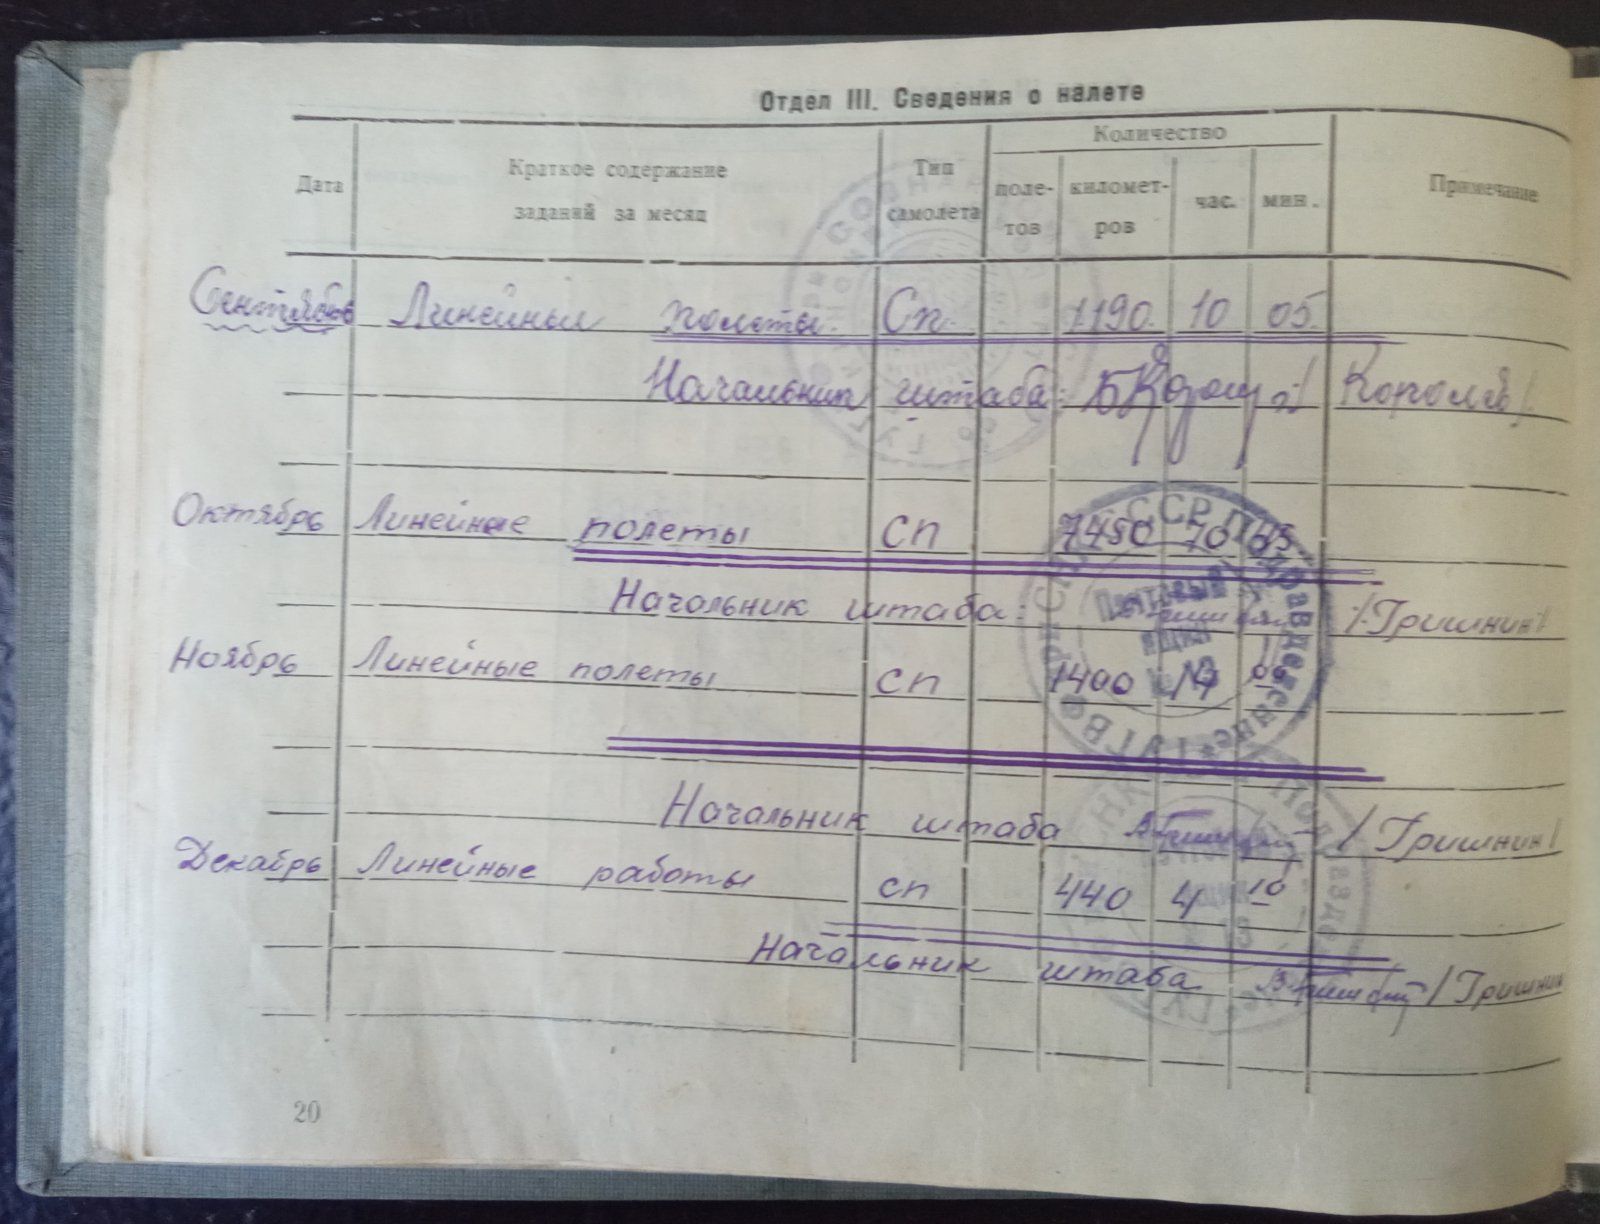 Отдел III. Сведения о налете
Дата Краткое содержание заданий за месяц Тип самолета Количество Примечание
поле-тов километ-ров час. мин.
Сентябрь Линейные полеты. Сп. 1190 10 05
Начальник штаба: /Королёв/
Октябрь Линейные полеты СП 10
Начальник штаба: /Гришнин/
Ноябрь Линейные полеты СП 1400
Начальник штаба /Гришнин/
Декабрь Линейные работы СП 440 4 10
Начальник штаба /Гришнин
20